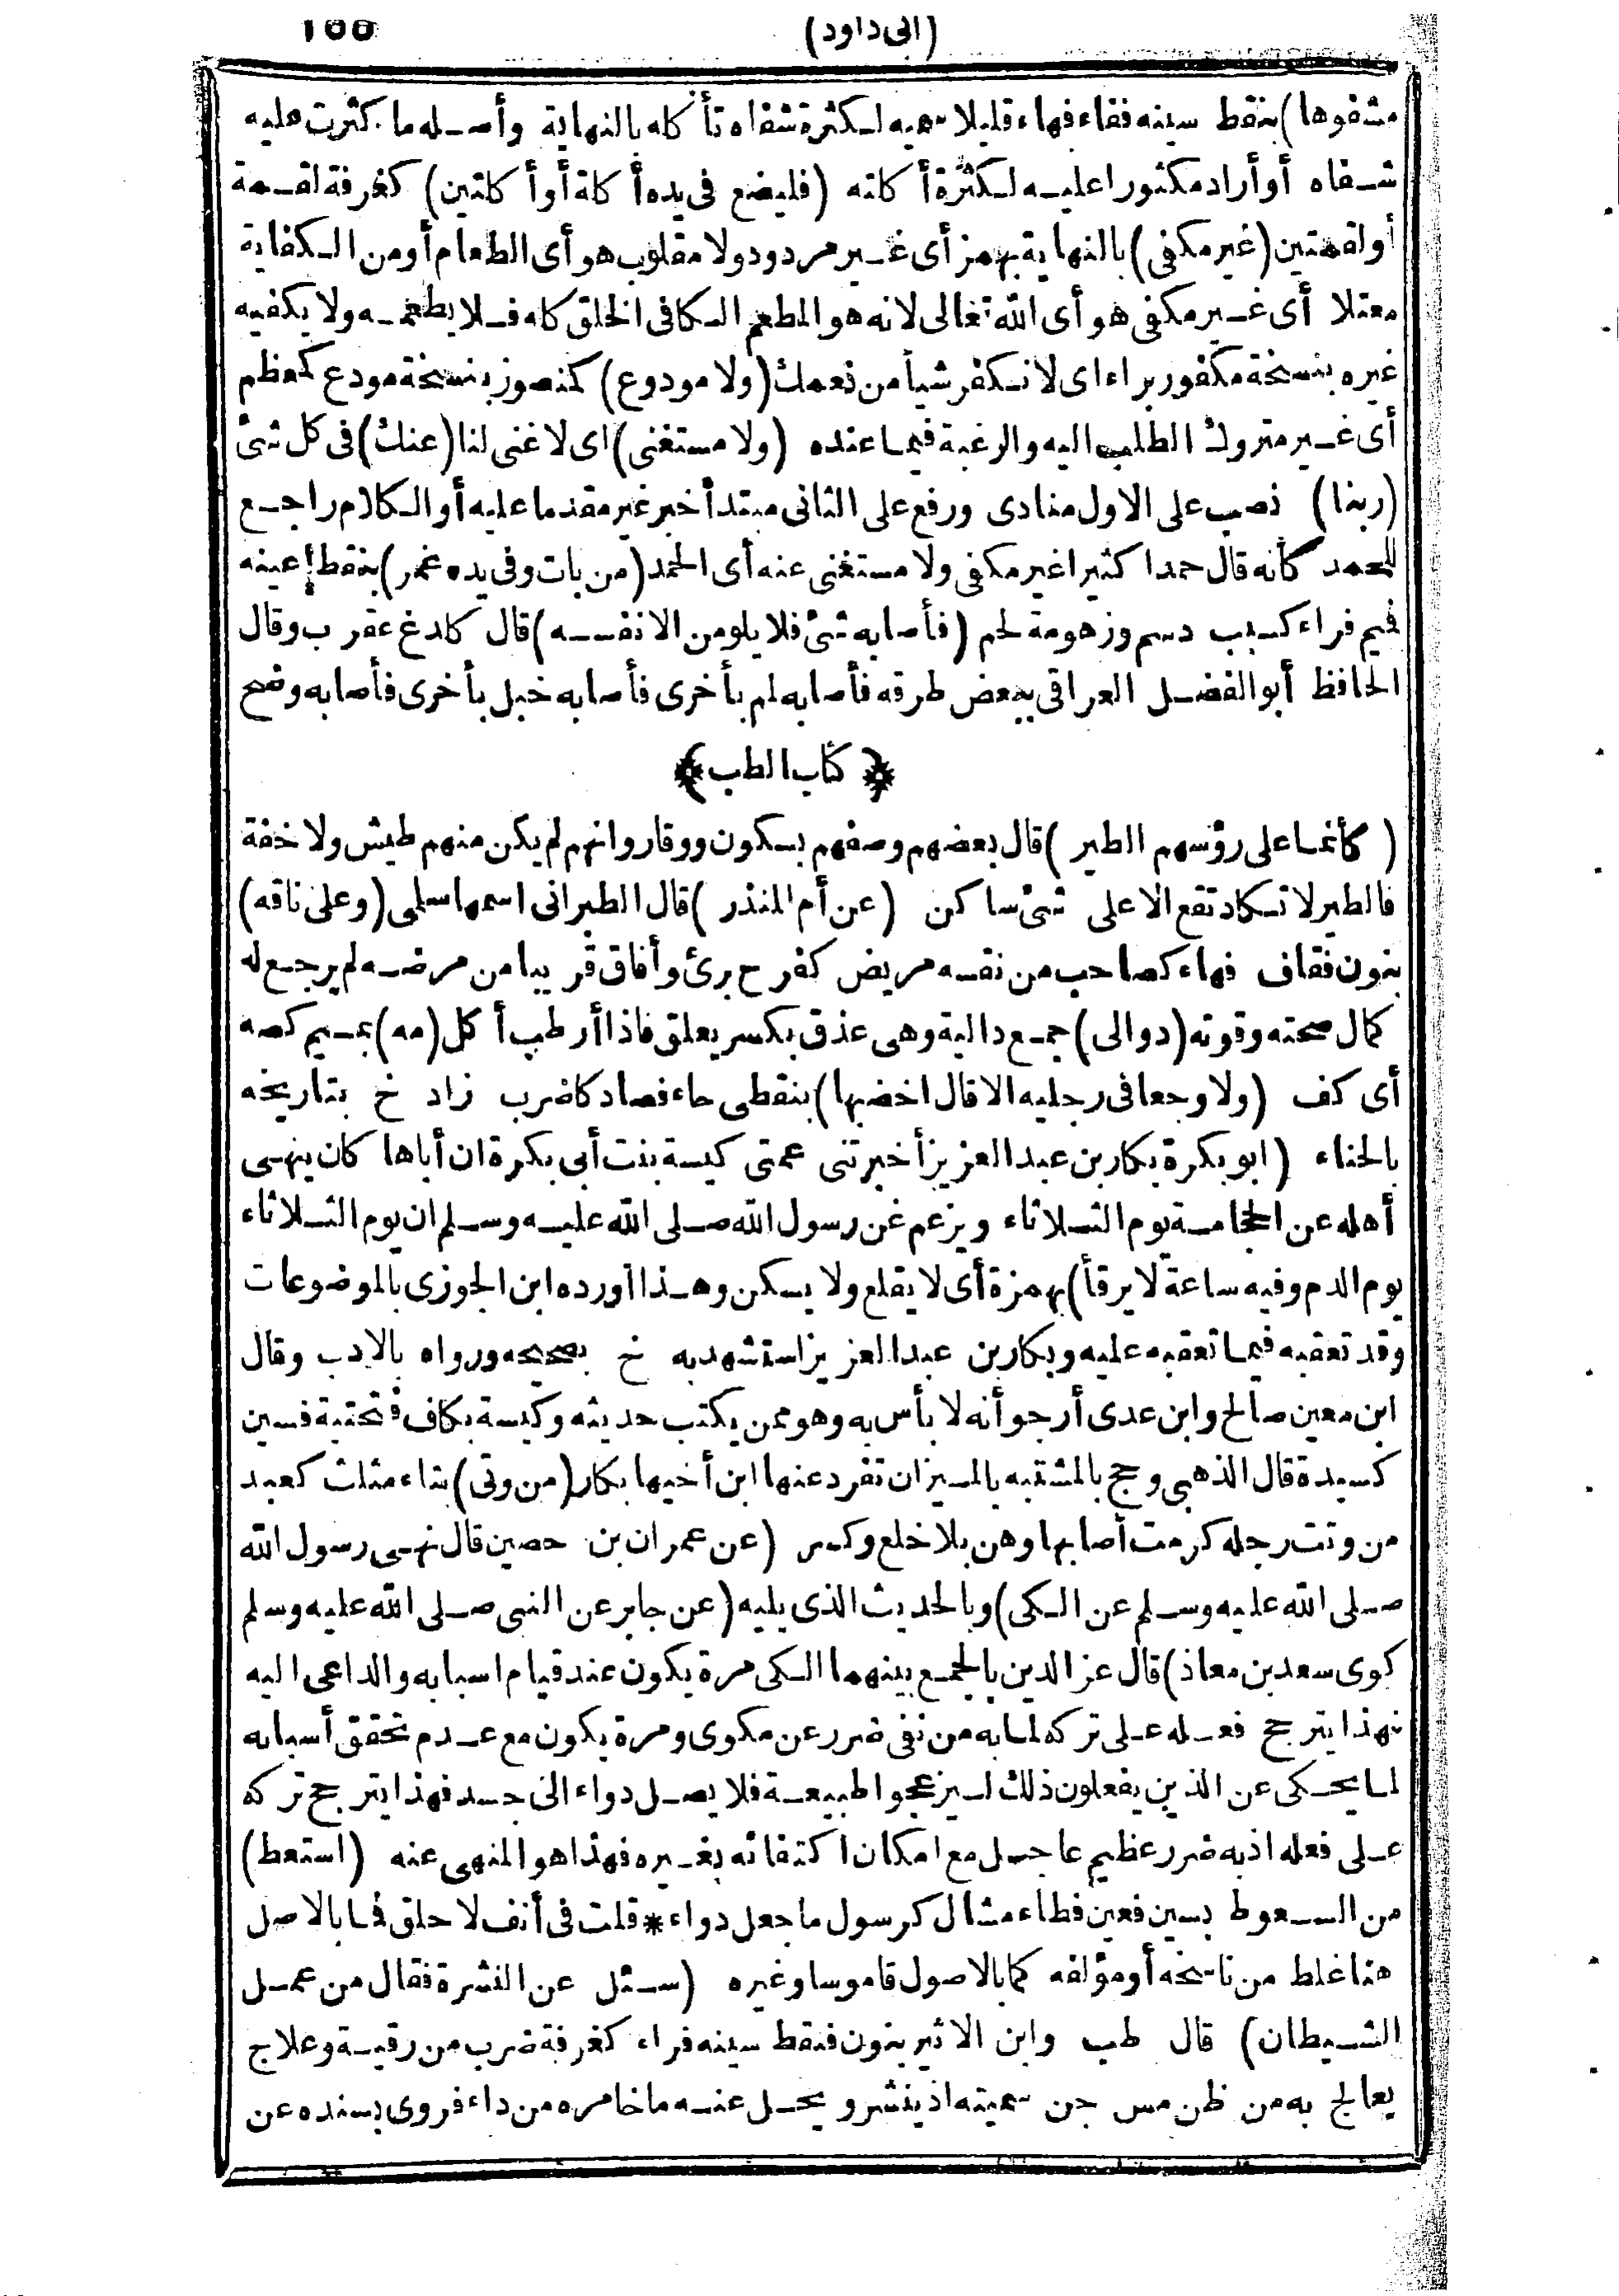 (ابى داود) ١٥٥
مشفوها) بنقط سينه ففاء فهاء قليلا سميه لكثرة شفاه تأكله بالنهاية وأصله ما كثرت عليه
شفاه أو أراد مكثورا عليه لكثرة أكلته (فليضع فى يده أكلة أو أكلتين) كغرفة لقمة
أو لقمتين (غير مكفى) بالنهاية بهمز أى غير مردود ولا مقلوب هو أى الطعام أو من الكفاية
معتلا أى غير مكفى هو أى الله تعالى لانه هو المطعم الكافى الخلق كله فلا يطعمه ولا يكفيه
غيره بنسخة مكفور براء اى لا نكفر شيأ من نعمك (ولا مودوع) كمنصور بنسخة مودع كمعظم
أى غير متروك الطلب اليه والرغبة فيما عنده (ولا مستغنى) اى لا غنى لنا (عنك) فى كل شئ
(ربنا) نصب على الاول منادى ورفع على الثانى مبتدأ خبر غير مقدما عليه أو الكلام راجع
للحمد كأنه قال حمدا كثيرا غير مكفى ولا مستغنى عنه أى الحمد (من بات وفى يده غمر) بنقط عينه
فميم فراء كسبب دسم وزهومة لحم (فأصابه شئ فلا يلومن الا نفسه) قال كلدغ عقرب وقال
الحافظ أبو الفضل العراقى ببعض طرقه فأصابه لم بأخرى فأصابه خبل بأخرى فأصابه وضح
﴿كتاب الطب﴾
(كأنما على رؤسهم الطير) قال بعضهم وصفهم بسكون ووقار وانهم لم يكن منهم طيش ولا خفة
فالطير لا تكاد تقع الا على شئ ساكن (عن أم المنذر) قال الطبرانى اسمها سلمى (وعلى ناقه)
بنون فقاف فهاء كصاحب من نقه مريض كفرح برئ وأفاق قريبا من مرضه لم يرجع له
كمال صحته وقوته (دوالى) جمع دالية وهى عذق بكسر يعلق فاذا أرطب أكل (مه) بميم كصه
أى كف (ولا وجعا فى رجليه الا قال اخضبها) بنقطى خاء فصاد كاضرب زاد خ بتاريخه
بالحناء (ابو بكرة بكار بن عبد العزيز أخبرتنى عمتى كيسة بنت أبى بكرة ان أباها كان ينهى
أهله عن الحجامة يوم الثلاثاء ويزعم عن رسول الله صلى الله عليه وسلم ان يوم الثلاثاء
يوم الدم وفيه ساعة لا يرقأ) بهمزة أى لا يقلع ولا يسكن وهذا أورده ابن الجوزى بالموضوعات
وقد تعقبه فيما تعقبه عليه وبكار بن عبد العزيز استشهد به خ بصحيحه ورواه بالادب وقال
ابن معين صالح وابن عدى أرجو أنه لا بأس به وهو ممن يكتب حديثه وكيسة بكاف فتحتية فسين
كسيدة قال الذهبى وحج بالمشتبه بالميزان تفرد عنها ابن أخيها بكار (من وثى) بثاء مثلث كعبد
من وثت رجله كرمت أصابها وهن بلا خلع وكسر (عن عمران بن حصين قال نهى رسول الله
صلى الله عليه وسلم عن الكى) وبالحديث الذى يليه (عن جابر عن النبى صلى الله عليه وسلم
كوى سعد بن معاذ) قال عز الدين بالجمع بينهما الكى مرة يكون عند قيام اسبابه والداعى اليه
فهذا يترجح فعله على تركه لما به من نفى ضرر عن مكوى ومرة يكون مع عدم تحقق أسبابه
لما يحكى عن الذين يفعلون ذلك ليزعجوا طبيعة فلا يصل دواء الى جسد فهذا يترجح تركه
على فعله اذ به ضرر عظيم عاجل مع امكان اكتفائه بغيره فهذا هو المنهى عنه (استعط)
من السعوط بسين فعين فطاء مشال كرسول ما جعل دواء * قلت فى أنف لا حلق فما بالاصل
هنا غلط من ناسخه أو مؤلفه كما بالاصول قاموسا وغيره (سئل عن النشرة فقال من عمل
الشيطان) قال طب وابن الاثير بنون فنقط سينه فراء كغرفة ضرب من رقية وعلاج
يعالج به من ظن مس جن سميته اذ ينشر ويحل عنه ما خامره من داء فروى بسنده عن